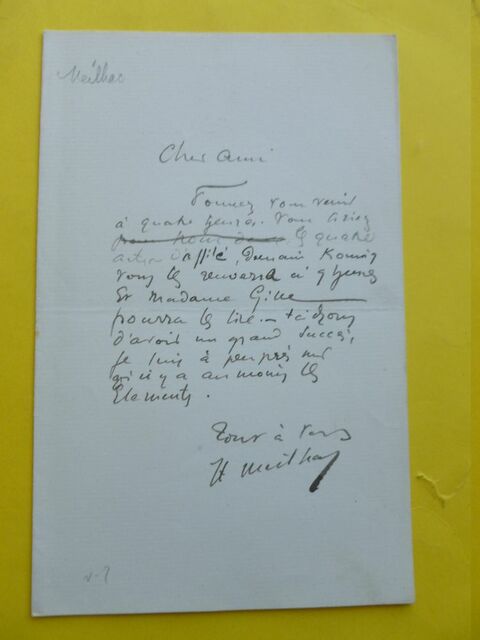 Meilhac
Cher ami
Pouvez vous venir
à quatre heures. Vous lirez
les quatre
actes d'affilé, demain Koning
vous les renverra à 9 heures
Et Madame Gille
pourra les lire. — tâchons
d'avoir un grand succès,
Je suis à peu près sûr
qu'il y a au moins les
Elements.
Tout à vous
H Meilhac